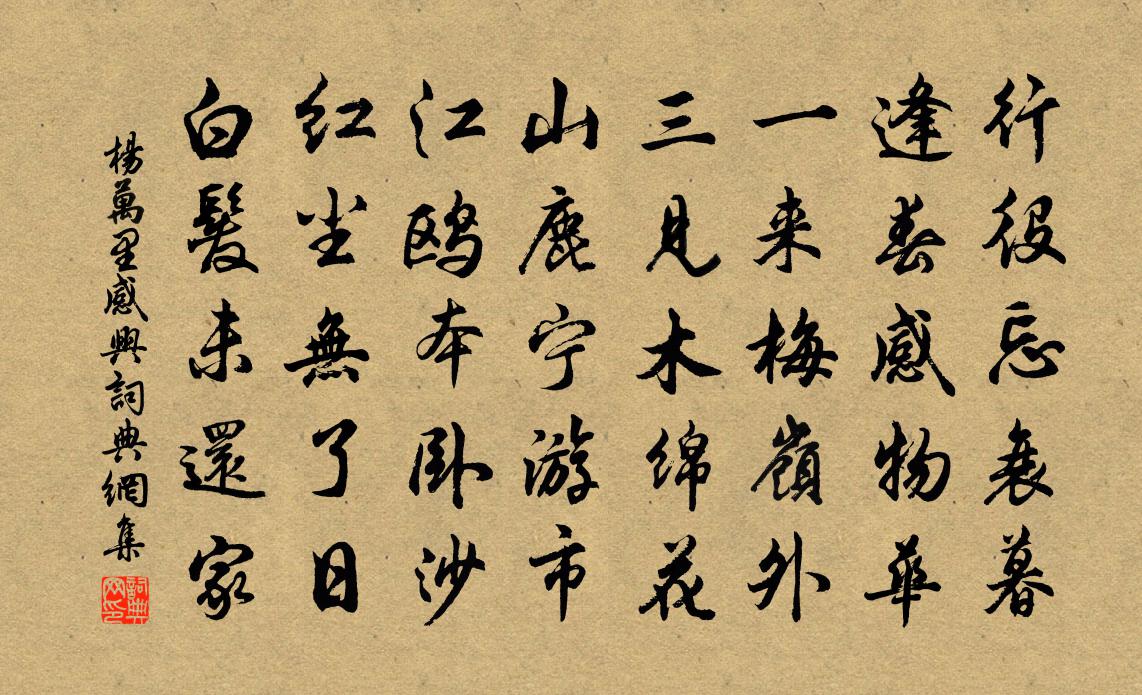 行役忘衰暮
逢春感物華
一来梅嶺外
三見木绵花
山鹿宁游市
江鸥本卧沙
红尘無了日
白髮未還家
楊萬里感興詞典網集
詞典网印